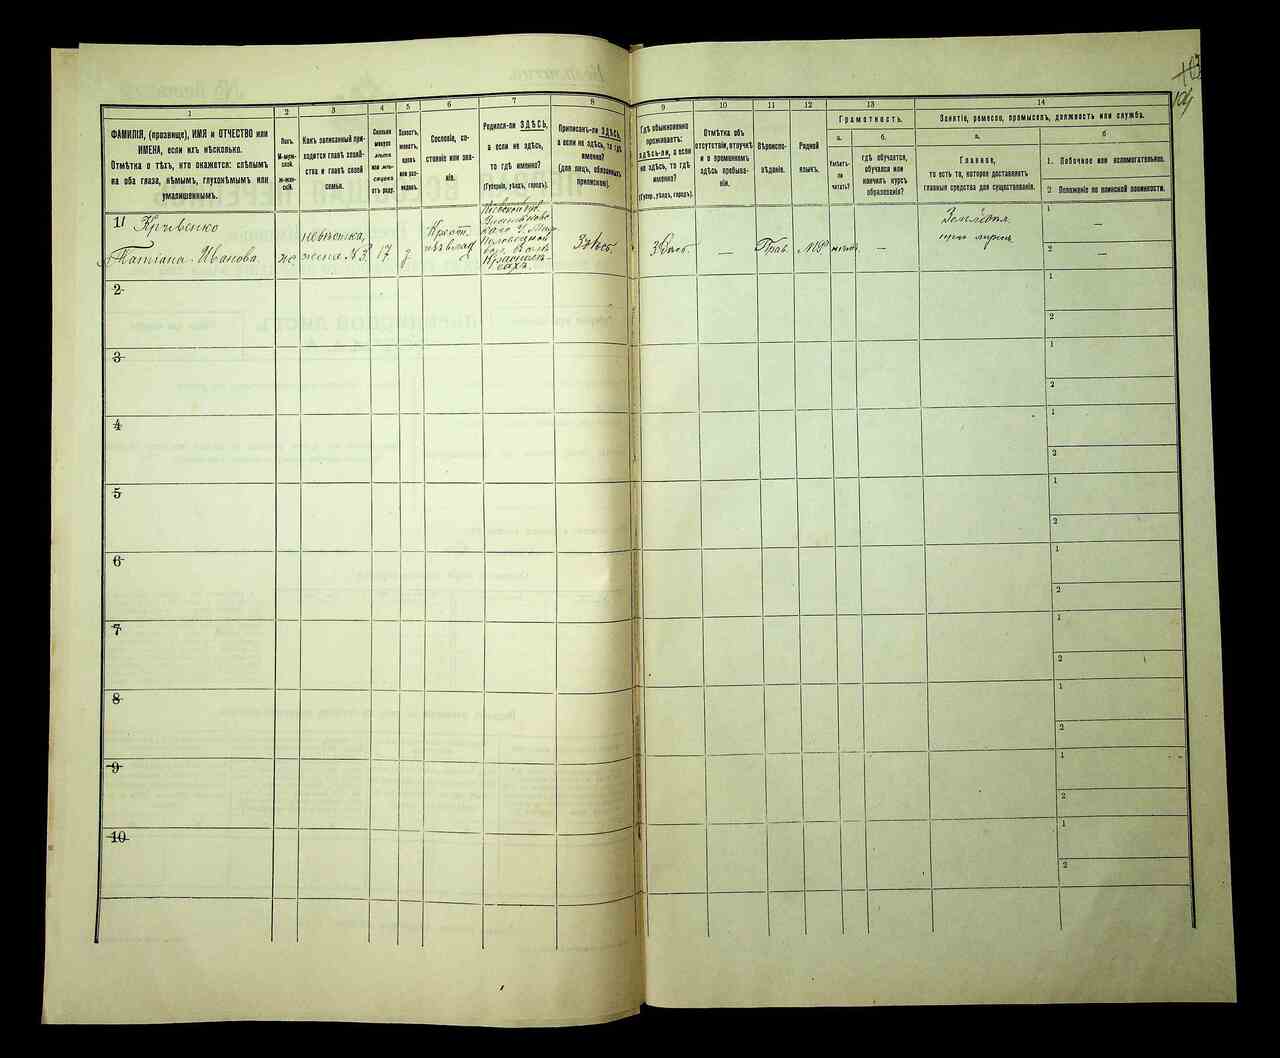 103
104
1
2
3
4
5
6
7
8
9
10
11
12
13
14
ФАМИЛІЯ, (прозвище), ИМЯ и ОТЧЕСТВО или
ИМЕНА, если ихъ нѣсколько.
Отмѣтка о тѣхъ, кто окажется: слѣпымъ
на оба глаза, нѣмымъ, глухонѣмымъ или
умалишеннымъ.
Полъ.
М-муж-
ской.
ж-жен-
скій.
Какъ записанный при-
ходится главѣ хозяй-
ства и главѣ своей
семьи.
Сколько
минуло
лѣтъ
или мѣ-
сяцевъ
отъ роду.
Холостъ,
женатъ,
вдовъ
или раз-
веденъ.
Сословіе, со-
стояніе или зва-
ніе.
Родился-ли ЗДѢСЬ,
а если не здѣсь,
то гдѣ именно?
(Губернія, уѣздъ, городъ).
Приписанъ-ли ЗДѢСЬ,
а если не здѣсь, то гдѣ
именно?
(для лицъ, обязанныхъ
припискою).
Гдѣ обыкновенно
проживаетъ:
здѣсь-ли, а если
не здѣсь, то гдѣ
именно?
(Губер., уѣздъ, городъ).
Отмѣтка объ
отсутствіи, отлучкѣ
и о временномъ
здѣсь пребыва-
ніи.
Вѣроиспо-
вѣданіе.
Родной
языкъ.
Грамотность.
а.
б.
Умѣетъ-
ли
читать?
гдѣ обучается,
обучался или
кончилъ курсъ
образованія?
Занятіе, ремесло, промыселъ, должность или служба.
а.
б
Главное,
то есть то, которое доставляетъ
главныя средства для существованія.
1. Побочное или вспомогательное.
2 Положеніе по воинской повинности.
11 Кривенко
Татіана Иванова.
ж
невѣстка,
жена № 3
17
з
Крест.
изъ влад
Здѣсь
Здѣсь
—
Прав.
Мал
—
Земледѣл.
1
—
2
—
2
1
2
3
1
2
4
1
2
5
1
2
6
1
2
7
1
2
8
1
2
9
1
2
10
1
2